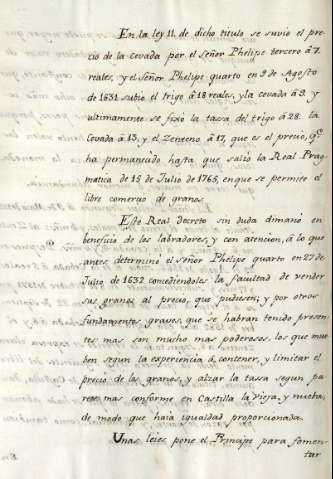 En la ley 11. de dicho titulo se suvio el pre-
cio de la cevada por el señor Phelipe tercero â 7.
reales, y el señor Phelipe quarto en 9 de Agosto
de 1631 subio el trigo â 18 reales, y la cevada â 9. y
ultimamente se fixò la tassa del trigo â 28. la
Cevada â 13, y el Zenteno â 17, que es el precio, qe
ha permanecido hasta que salió la Real Prag-
matica de 15 de Julio de 1765, en que se permite el
libre comercio de granos.
Este Real decreto sin duda dimanò en
beneficio de los labradores, y con atencion, â lo que
antes determinò el señor Phelipe quarto en 27 de
Julio de 1632 concediendoles la facultad de vender
sus granos al precio, que pudiesen; y por otros
fundamentos graves, que se habran tenido presen-
tes mas son mucho mas poderosos, los que mue-
ben segun la experiencia â contener, y limitar el
precio de los granos, y alzar la tassa segun pa-
rece mas conforme en Castilla la Vieja, y nueba,
de modo que haia igualdad proporcionada.
Unas leies pone el Principe para fomen-
tar